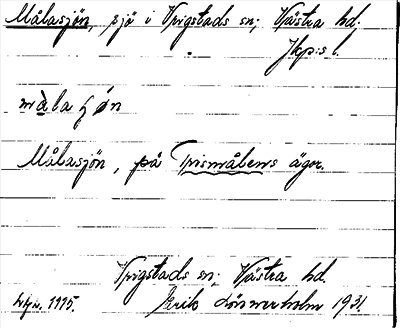 Målasjön, sjö i Vrigstads sn; Västra hd.
Jkp:s l.
målaʃön
Målasjön, på Prismålens ägor.
Vrigstads sn; Västra hd.
htpr. 1115. Erik Lönnerholm 1931.